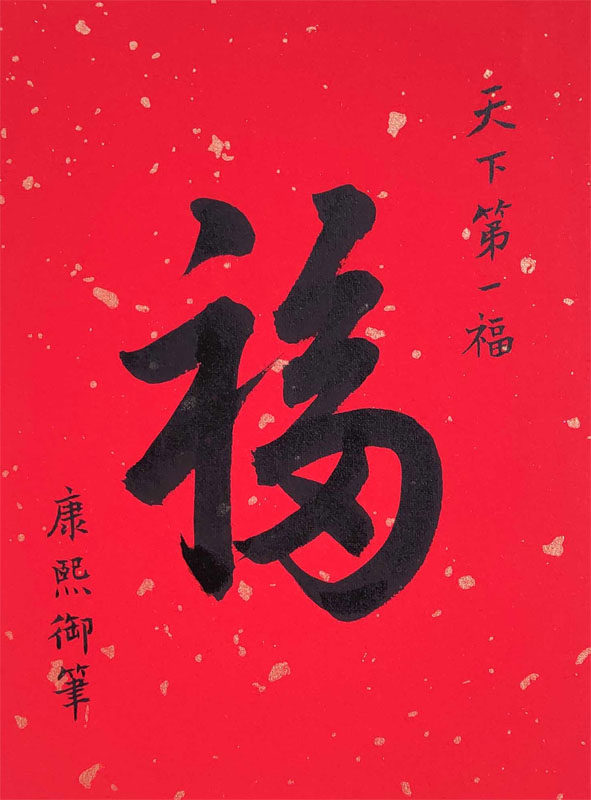 天下第一福
福
康熙御筆